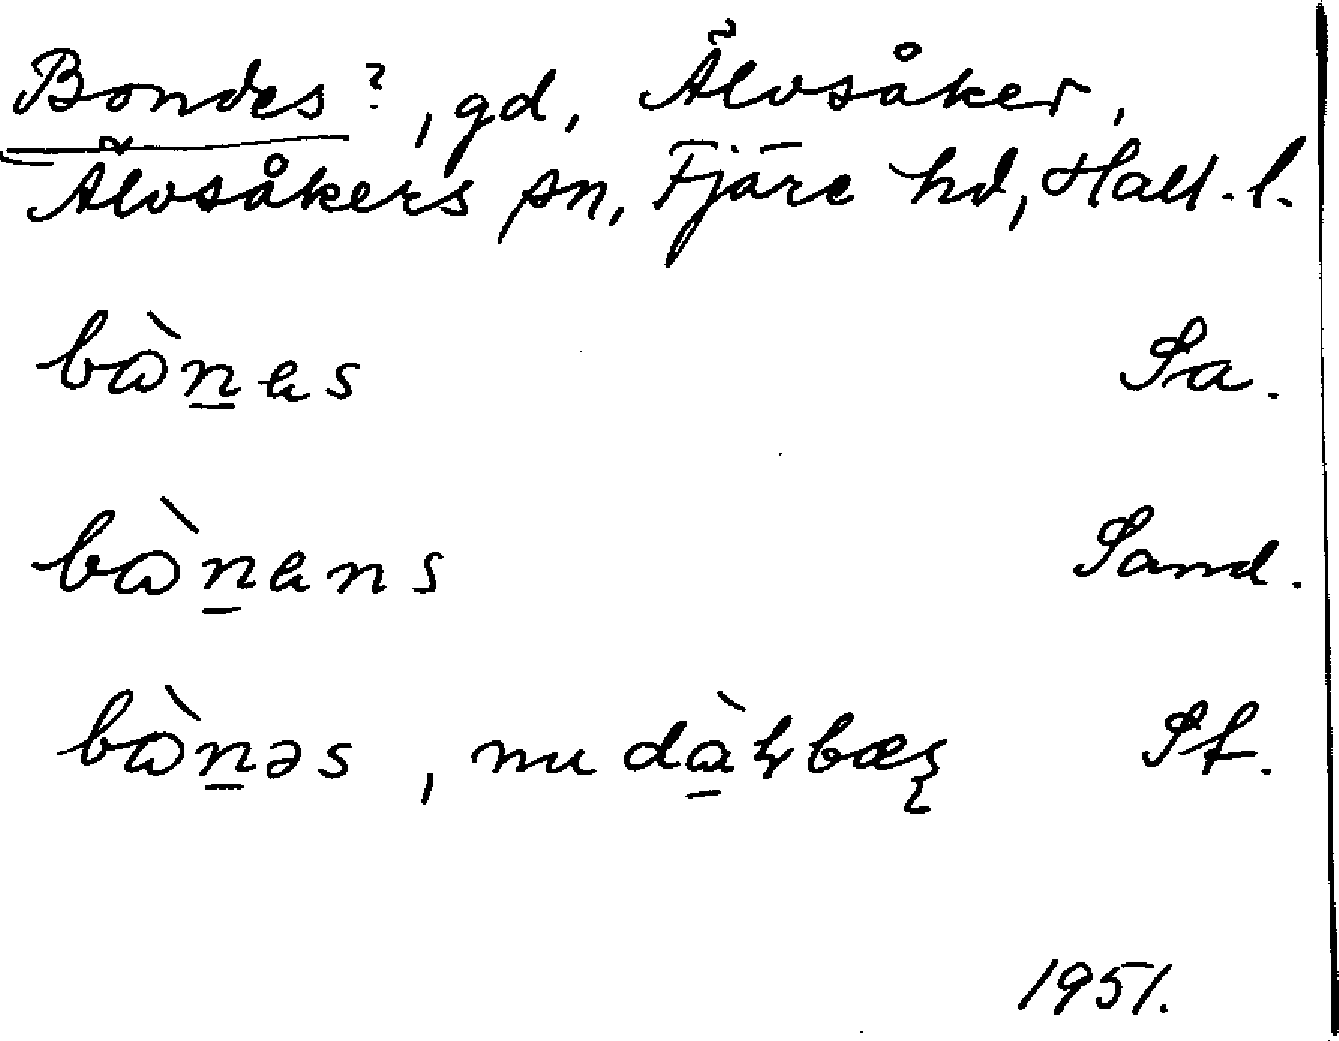 Bondes?, gd, Älvsåker,
Älvsåkers sn, Fjäre hd, Hall. l.
bɷ̀n̲es Sa.
bɷ̀n̲ens Sand.
bɷ̀n̲əs, nu Sf.
1951.